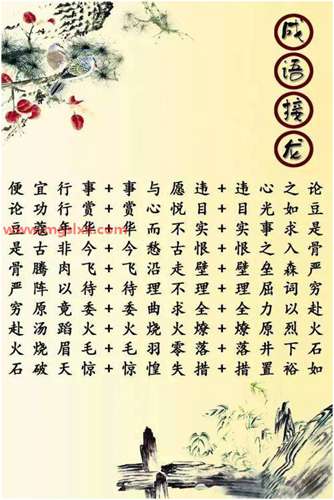 成语接龙
便宜行事+事与愿违+违心之论
论功行赏+赏心悦目+目光如豆
豆蔻年华+华而不实+实事求是
是古非今+今愁古恨+恨之入骨
骨腾肉飞+飞沿走壁+壁垒森严
严阵以待+待理不理+理屈词穷
穷原竟委+委曲求全+全力以赴
赴汤蹈火+火烧火燎+燎原烈火
火烧眉毛+毛羽零落+落井下石
石破天惊+惊惶失措+措置裕如